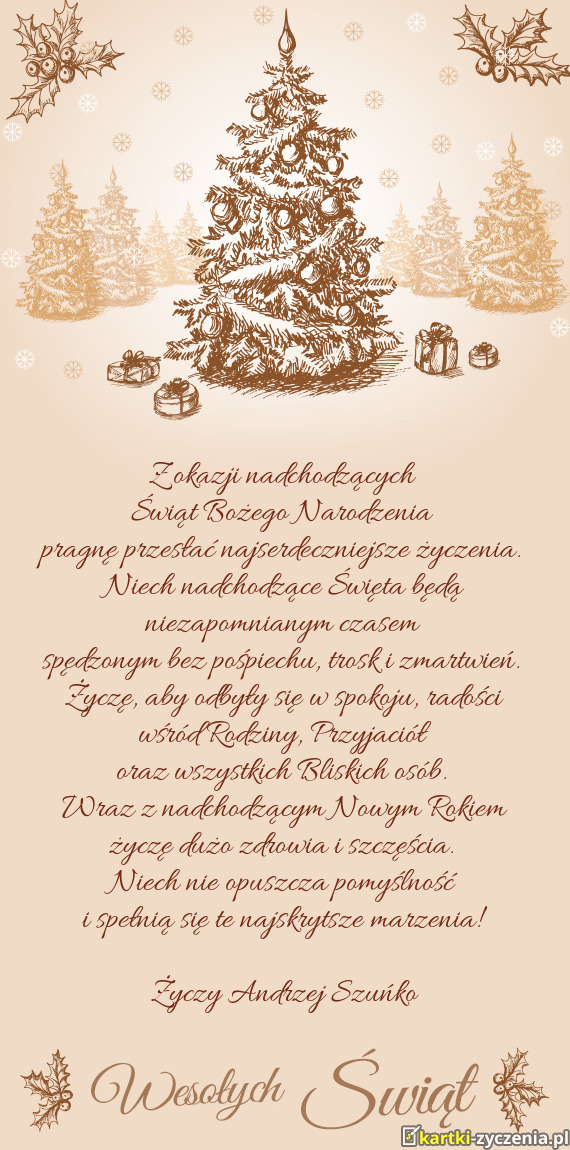 Z okazji nadchodzących
Świąt Bożego Narodzenia
pragnę przesłać najserdeczniejsze życzenia.
Niech nadchodzące Święta będą
niezapomnianym czasem
spędzonym bez pośpiechu, trosk i zmartwień.
Życzę, aby odbyły się w spokoju, radości
wśród Rodziny, Przyjaciół
oraz wszystkich Bliskich osób.
Wraz z nadchodzącym Nowym Rokiem
życzę dużo zdrowia i szczęścia.
Niech nie opuszcza pomyślność
i spełnią się te najskrytsze marzenia!
Życzy Andrzej Szuńko
Wesołych Świąt
kartki-zyczenia.pl